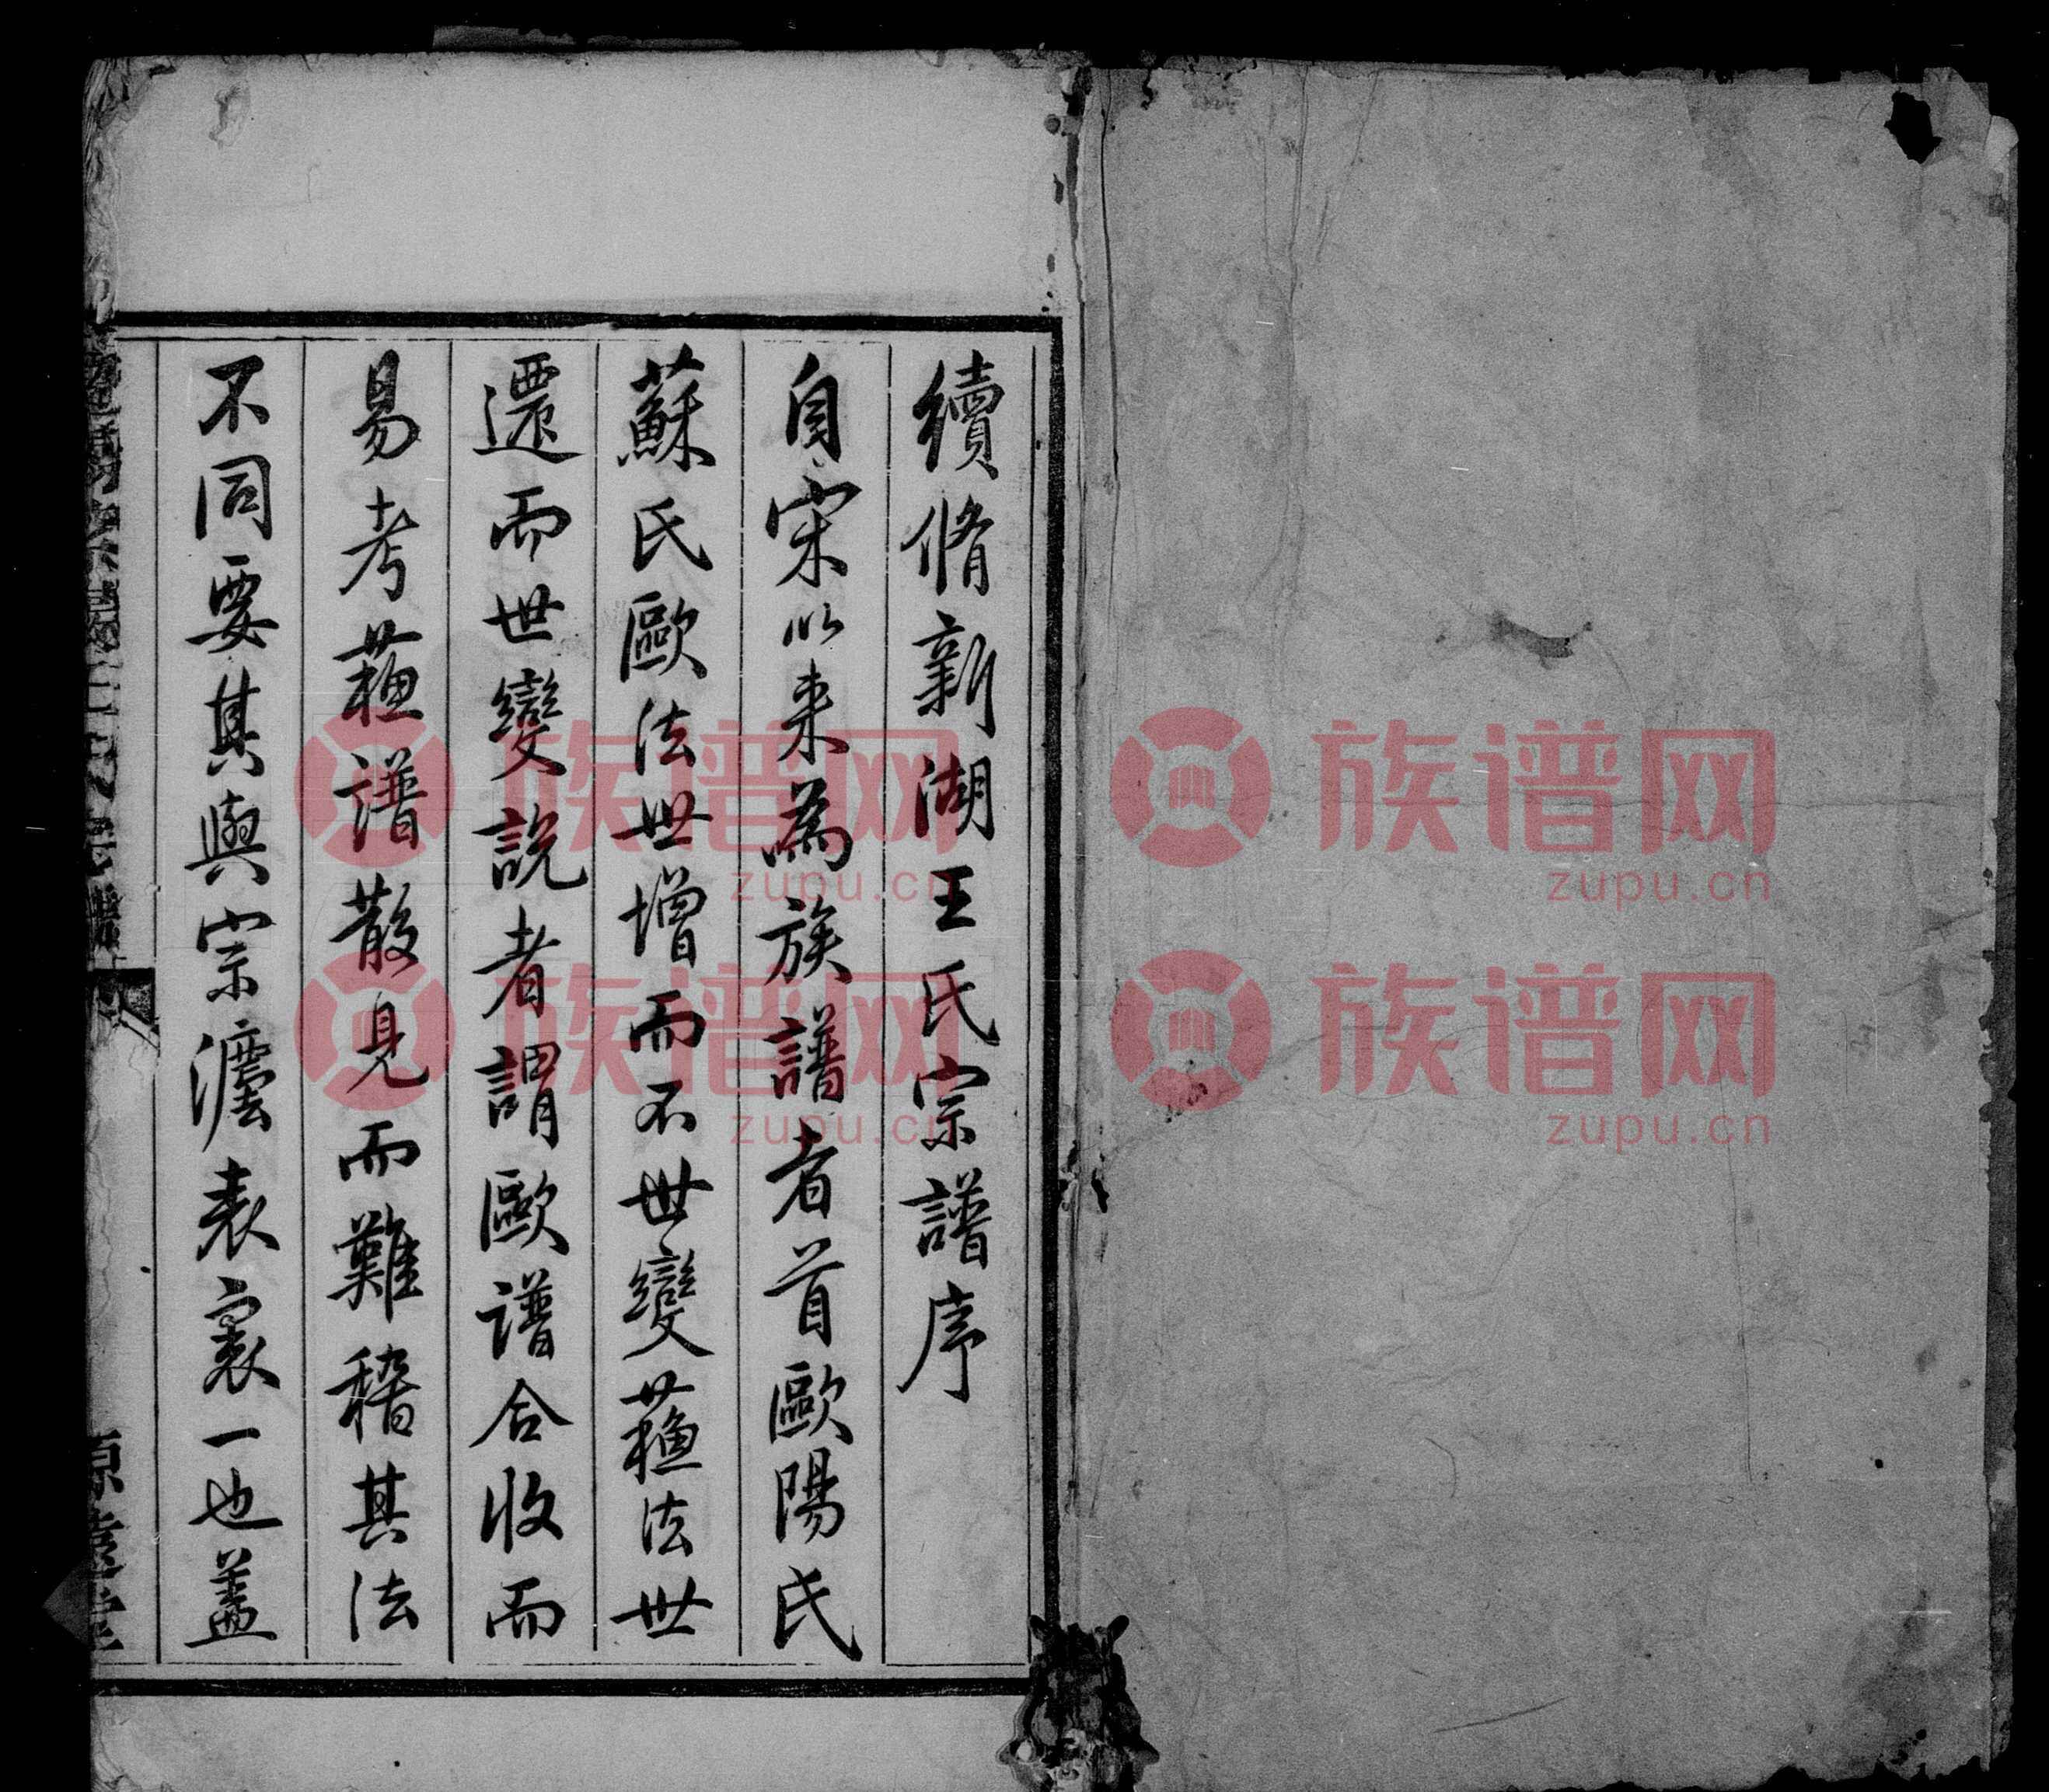 續脩新湖王氏宗譜序
自宋以来為族譜者首歐陽氏
蘇氏歐法世增而不世變蘓法世
遷而世變説者謂歐譜合收而
易考蘓譜散見而難稽其法
不同要其與宗灋表裏一也蓋
族谱网
zupu.cn
族谱网
zupu.cn
族谱网
zupu.cn
族谱网
zupu.cn